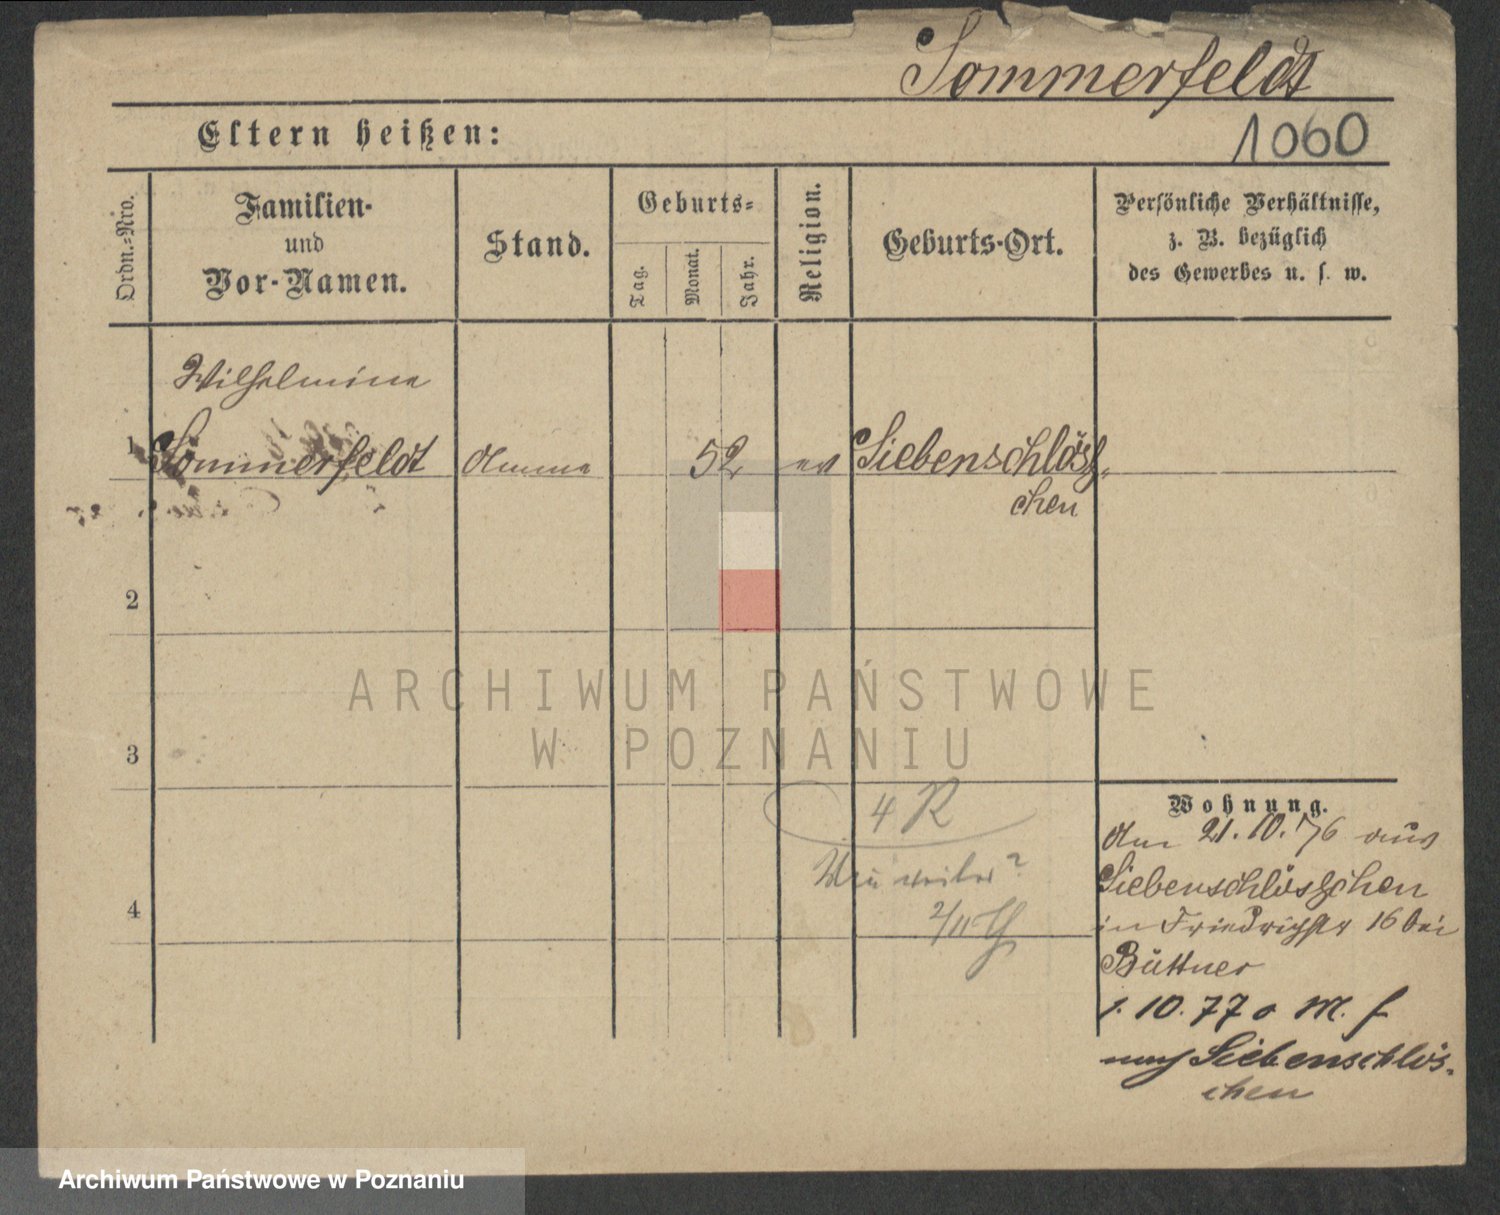 Sommerfeldt
Eltern heißen:
1060
Ordn.-Nro.
Familien-
und
Vor-Namen.
Stand.
Geburts-
Tag.
Monat.
Jahr.
Religion.
Geburts-Ort.
Persönliche Verhältnisse,
z. B. bezüglich
des Gewerbes u. s. w.
Wilhelmine
1 Sommerfeldt Amme 52 ev Siebenschlöß-
chen
2
ARCHIWUM PAŃSTWOWE
W POZNANIU
3
4 R
2/11
4
Wohnung.
Am 21.10.76 aus
Siebenschlösschen
in Friedrichstr 16 bei
Büttner
1.10.77 o M. f
nach Siebenschlös-
chen
Archiwum Państwowe w Poznaniu